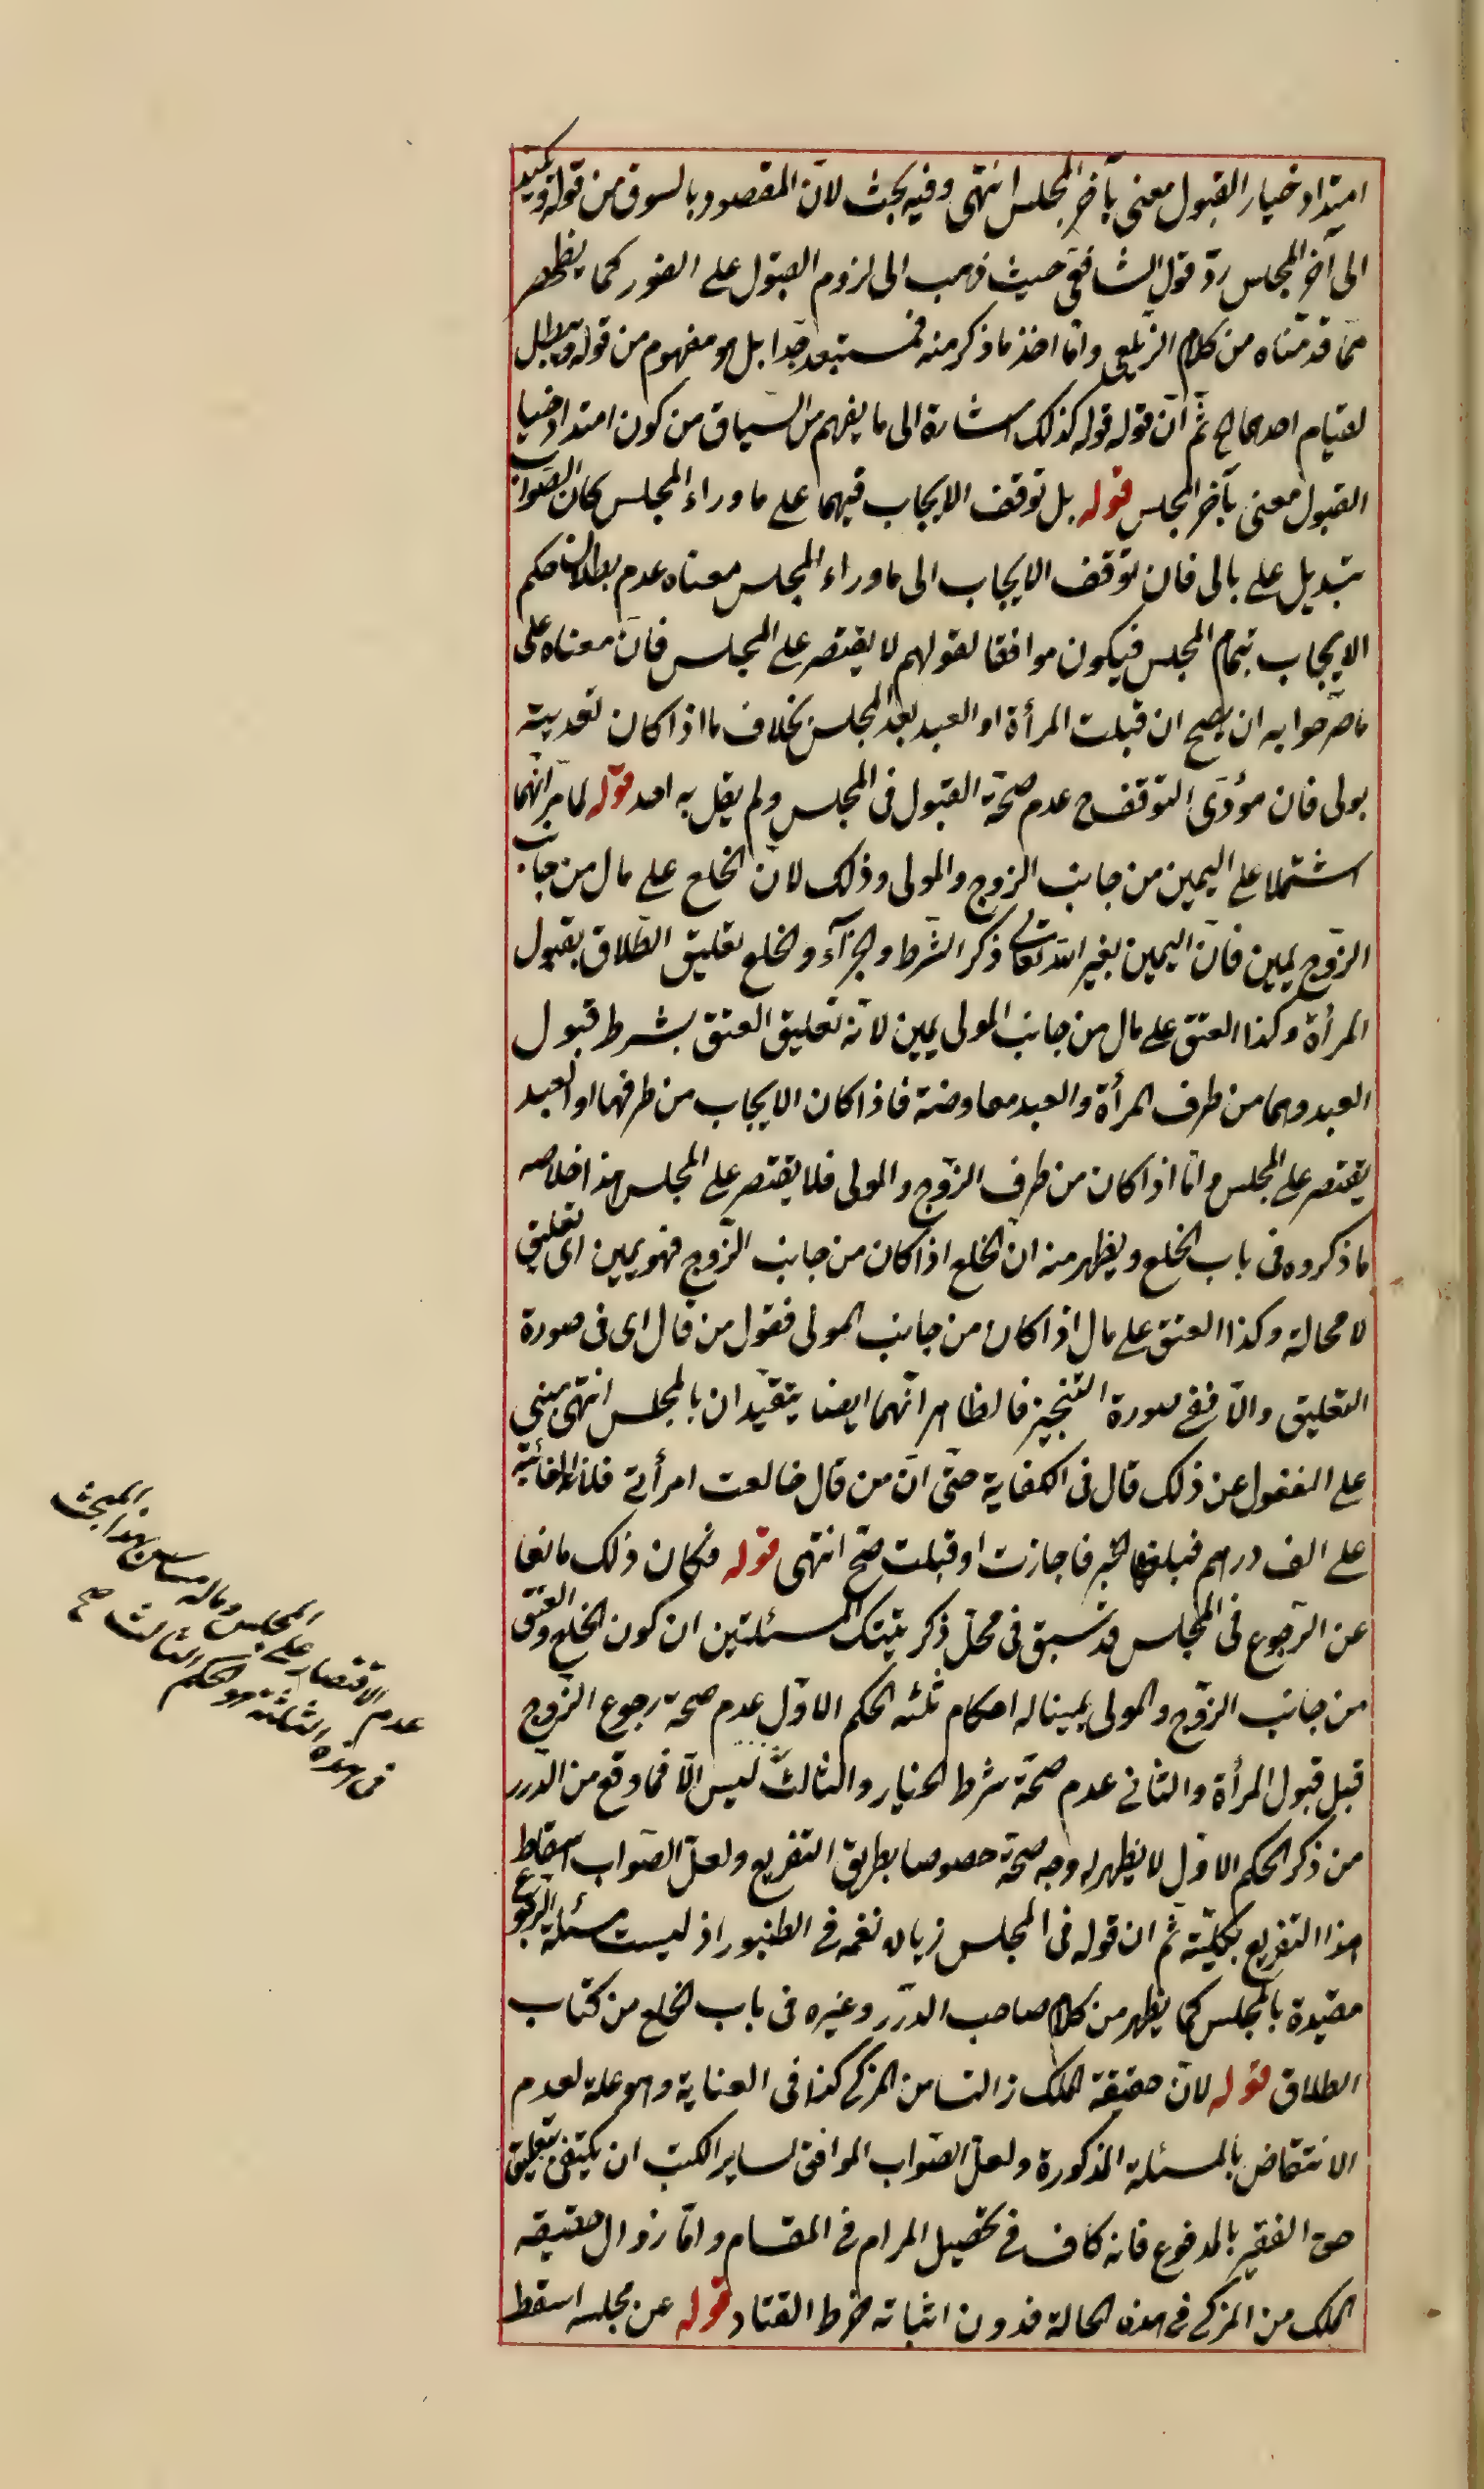 امتداد خيار القبول معنى بآخر المجلس انتهى وفيه بحث لانّ المقصود بالسوق من قوله ويمتد
الى آخر المجلس ردّ قول الشافعى حيث ذهب الى لزوم القبول على الفور كما يظهر
ممّا قدّمناه من كلام الزيلعى وامّا اخذ ما ذكر منه فمستبعد جدّا بل هو مفهوم من قوله ويبطل
لقيام احدهما الخ ثمّ انّ قوله قوله كذلك اشارة الى ما يفهم من السياق من كون امتداد خيار
القبول معنى بآخر المجلس قوله بل توقف الايجاب فيهما على ما وراء المجلس كان الصواب
تبديل على بالى فان توقف الايجاب الى ما وراء المجلس معناه عدم بطلان حكم
الايجاب بتمام المجلس فيكون موافقا لقولهم لا يقتصر على المجلس فانّ معناه على
ما صرّحوا به ان يصح ان قبلت المرأة او العبد بعد المجلس بخلاف ما اذا كان تعديته
بولى فان مؤدّى التوقف ح عدم صحّة القبول فى المجلس ولم يقل به احد قوله لما مرّ انّهما
اشتملا على اليمين من جانب الزوج والمولى وذلك لانّ الخلع على مال من جانب
الزّوج يمين فانّ اليمين بغير اللّه تعالى ذكر الشّرط والجزآء والخلع تعليق الطّلاق بقبول
المرأة وكذا العتق على مال من جانب المولى يمين لانّه تعليق العتق بشرط قبول
العبد وهما من طرف المرأة والعبد معاوضة فاذا كان الايجاب من طرفهما او العبد
يقتصر على المجلس وامّا اذا كان من طرف الزّوج والمولى فلا يقتصر على المجلس هذا خلاصه
ما ذكروه فى باب الخلع ويظهر منه ان الخلع اذا كان من جانب الزّوج فهو يمين اى تعليق
لا محالة وكذا العتق على مال اذا كان من جانب المولى فقول من قال اى فى صورة
التعليق والّا ففى صورة التنجيز فالظاهر انّهما ايضا يتقيّدان بالمجلس انتهى مبنى
على الغفول عن ذلك قال فى الكفاية حتّى انّ من قال خالعت امرأتى فلانة الغائبة
على الف درهم فبلغها الخبر فاجازت او قبلت صحّ انتهى قوله فكان ذلك مانعا
عن الرّجوع فى المجلس قد سبق فى محلّ ذكر تينك المسئلتين ان كون الخلع والعتق
من جانب الزوّج والمولى يمينا له احكام ثلثه الحكم الاوّل عدم صحة رجوع الزّوج
قبل قبول المرأة والثانى عدم صحّة شرط الخيار والثالث ليس الّا فما وقع من الدّرر
من ذكر الحكم الاوّل لا يظهر له وجه صحّة خصوصا بطريق التفريع ولعلّ الصّواب اسقاط
هذا التفريع بكليّته ثم ان قوله فى المجلس زياده نغمه فى الطنبور اذ ليست مسئلة الرّجوع
مقيّدة بالمجلس كما يظهر من كلام صاحب الدّرر وغيره فى باب الخلع من كتاب
الطلاق قوله لانّ حقيقة الملك زالت من المزكى كذا فى العناية وهو علة لعدم
الانتقاض بالمسئلة المذكورة ولعلّ الصّواب الموافق لساير الكتب ان يكتفى بتعليق
حق الفقير بالمدفوع فانه كاف فى تحصيل المرام فى المقام وامّا زوال حقيقه
الملك من المزكى فى هذه الحالة فدون اثباته خرط القتاد قوله عن مجلسه اسقط
عدم الاقتصار على المجلس وماله مساس بهذا المبحث
فى هذه الثلثة هو الحكم الثالث صح